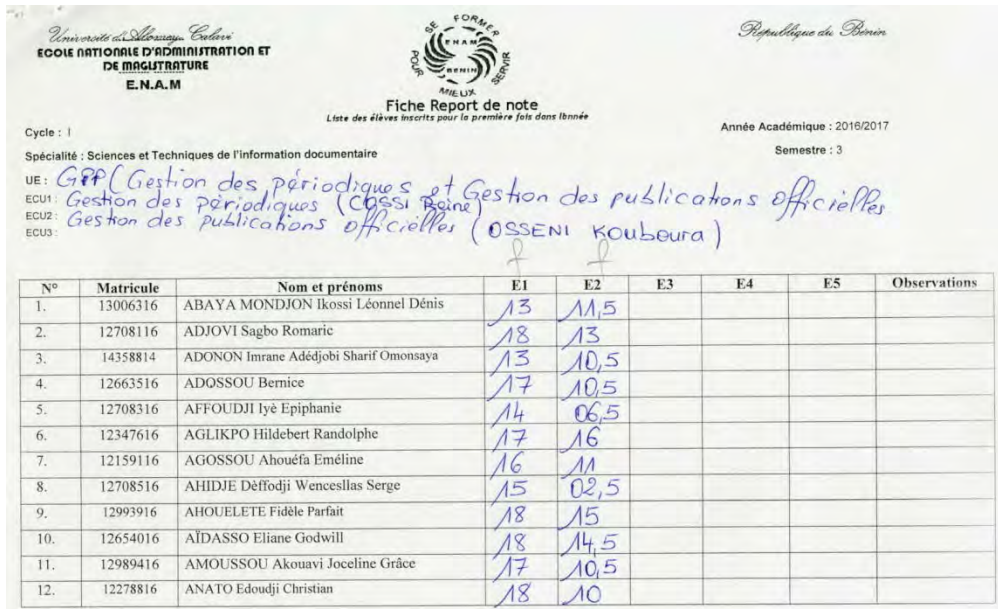 Université d'Abomey Calavi
ECOLE NATIONALE D'ADMINISTRATION ET
DE MAGISTRATURE
E.N.A.M
SE FORMER POUR MIEUX SERVIR
ENAM
BENIN
République du Bénin
Fiche Report de note
Liste des élèves inscrits pour la première fois dans lbnnée
Cycle : I
Année Académique : 2016/2017
Spécialité : Sciences et Techniques de l'information documentaire
Semestre : 3
UE : GPP (Gestion des périodiques et Gestion des publications officielles
ECU1 : Gestion des périodiques (COSSI Reine)
ECU2 : Gestion des publications officielles (OSSENI Kouboura)
ECU3 :
N° Matricule Nom et prénoms E1 E2 E3 E4 E5 Observations
1. 13006316 ABAYA MONDJON Ikossi Léonnel Dénis 13 11,5
2. 12708116 ADJOVI Sagbo Romaric 18 13
3. 14358814 ADONON Imrane Adédjobi Sharif Omonsaya 13 10,5
4. 12663516 ADOSSOU Bernice 17 10,5
5. 12708316 AFFOUDJI Iyè Epiphanie 14 06,5
6. 12347616 AGLIKPO Hildebert Randolphe 17 16
7. 12159116 AGOSSOU Ahouéfa Eméline 16 11
8. 12708516 AHIDJE Dèffodji Wencesllas Serge 15 02,5
9. 12993916 AHOUELETE Fidèle Parfait 18 15
10. 12654016 AÏDASSO Eliane Godwill 18 14,5
11. 12989416 AMOUSSOU Akouavi Joceline Grâce 17 10,5
12. 12278816 ANATO Edoudji Christian 18 10